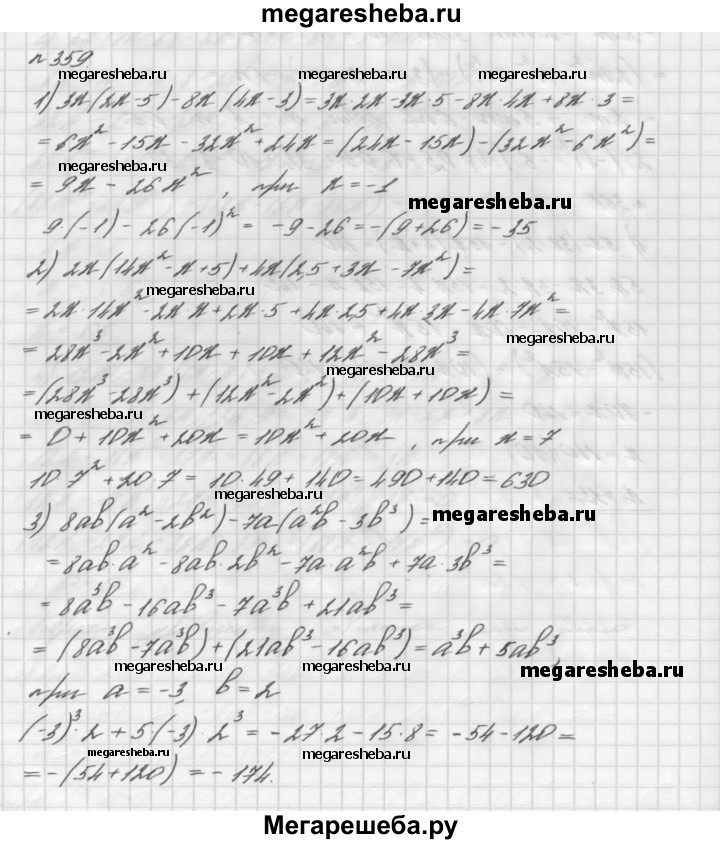 megaresheba.ru
n 359.
megaresheba.ru megaresheba.ru megaresheba.ru
1) 3x(2x-5)-8x(4x-3)=3x·2x-3x·5-8x·4x+8x·3=
=6x²-15x-32x²+24x=(24x-15x)-(32x²-6x²)=
megaresheba.ru
=9x-26x², при x=-1
megaresheba.ru
9·(-1)-26(-1)²=-9-26=-(9+26)=-35
2) 2x(14x²-x+5)+4x(2,5+3x-7x²)=
megaresheba.ru megaresheba.ru
=2x·14x²-2x·x+2x·5+4x·2,5+4x·3x-4x·7x²=
megaresheba.ru megaresheba.ru
=28x³-2x²+10x+10x+12x²-28x³=
megaresheba.ru
=(28x³-28x³)+(12x²-2x²)+(10x+10x)=
megaresheba.ru
=0+10x²+20x=10x²+20x, при x=7
10·7²+20·7=10·49+140=490+140=630
megaresheba.ru
3) 8ab(a²-2b²)-7a(a²b-3b³)=
megaresheba.ru
=8ab·a²-8ab·2b²-7a·a²b+7a·3b³=
=8a³b-16ab³-7a³b+21ab³=
=(8a³b-7a³b)+(21ab³-16ab³)=a³b+5ab³,
megaresheba.ru megaresheba.ru megaresheba.ru
при a=-3, b=2
(-3)³·2+5·(-3)·2³=-27·2-15·8=-54-120=
megaresheba.ru megaresheba.ru
=-(54+120)=-174.
Мегарешеба.ру